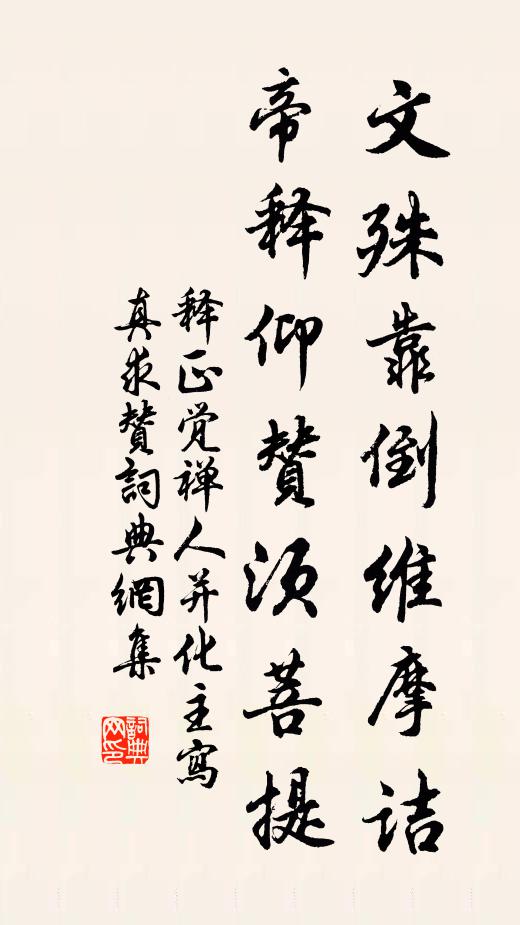 文殊靠倒维摩诘
帝释仰赞须菩提
释正觉禅人并化主寫
真求赞詞典網集
詞典网印